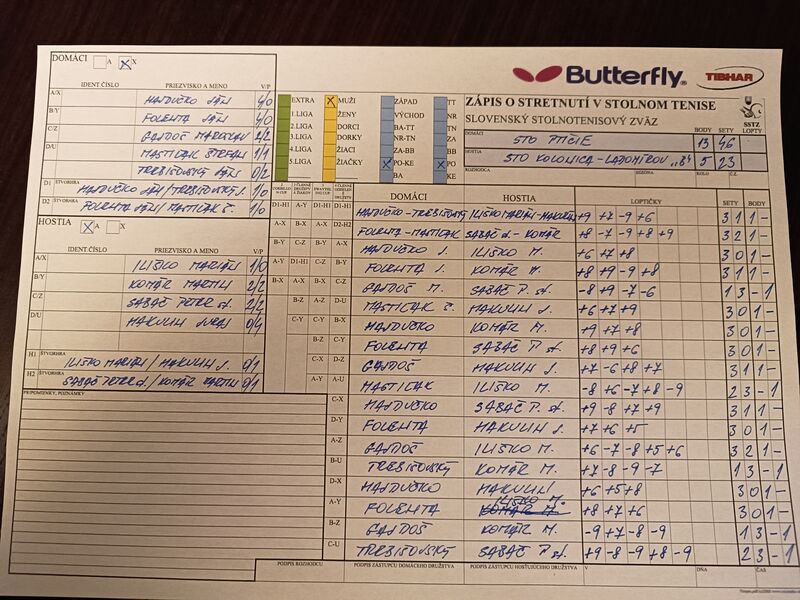 DOMÁCI A X
Butterfly
TIBHAR
IDENT.ČÍSLO PRIEZVISKO A MENO V/P
A/X HAJDUČKO JÁN 4/0
B/Y FOLENTA JÁN 4/0
C/Z GAJDOŠ MAROSLAV 2/2
D/U MASTICAK ŠTEFAN 1/1
TREBIŠOVSKÝ 0/2
D1 ŠTVORHRA HAJDUČKO JÁN/TREBIŠOVSKÝ J. 1/0
D2 FOLENTA JÁN/MASTICAK Š. 1/0
HOSTIA A X
IDENT.ČÍSLO PRIEZVISKO A MENO V/P
A/X ILIŠKO MARIÁN 1/0
B/Y KOMÁR MARTIN 2/2
C/Z SABAČ PETER st. 2/2
D/U HAKULIN JURAJ 0/4
H1 ŠTVORHRA ILIŠKO MARIÁN/HAKULIN J. 0/1
H2 ŠTVORHRA SABAČ PETER st./KOMÁR MARTIN 0/1
PRIPOMIENKY, POZNÁMKY
EXTRA MUŽI ZÁPAD TT
1.LIGA ŽENY VÝCHOD NR
2.LIGA DORCI BA-TT TN
3.LIGA DORKY NR-TN ZA
4.LIGA ŽIACI ZA-BB BB
5.LIGA ŽIAČKY PO-KE PO
BA KE
ZÁPIS O STRETNUTÍ V STOLNOM TENISE
SLOVENSKÝ STOLNOTENISOVÝ ZVÄZ
SSTZ
BODY SETY LOPTY
DOMÁCI STO PTIČIE 13 46
HOSTIA STO KOLONICA-LADOMIROV "B" 5 23
ROZHODCA SEZÓNA KOLO Č.
DOMÁCI HOSTIA LOPTIČKY SETY BODY
D1-H1 HAJDUČKO-TREBIŠOVSKÝ ILIŠKO MARIÁN-HAKULIN +9 +7 -9 +6 3 1 1 -
D2-H2 FOLENTA-MASTICAK SABAČ st.-KOMÁR +8 -7 -9 +8 +9 3 2 1 -
A-X HAJDUČKO J. ILIŠKO M. +6 +7 +8 3 0 1 -
B-Y FOLENTA J. KOMÁR M. +8 +9 -9 +8 3 1 1 -
C-Z GAJDOŠ M. SABAČ P. st. -8 +9 -7 -6 1 3 - 1
D-U MASTICAK Š. HAKULIN J. +6 +7 +9 3 0 1 -
HAJDUČKO KOMÁR M. +9 +7 +8 3 0 1 -
FOLENTA SABAČ P. st. +8 +9 +6 3 0 1 -
GAJDOŠ HAKULIN J. +7 -6 +8 +7 3 1 1 -
MASTICAK ILIŠKO M. -8 +6 -7 +8 -9 2 3 - 1
C-X HAJDUČKO SABAČ P. st. +9 -8 +7 +9 3 1 1 -
D-Y FOLENTA HAKULIN J. +7 +6 +5 3 0 1 -
A-Z GAJDOŠ ILIŠKO M. +6 -7 -8 +5 +6 3 2 1 -
B-U TREBIŠOVSKÝ KOMÁR M. +7 -8 -9 -7 1 3 - 1
D-X HAJDUČKO HAKULIN +6 +5 +8 3 0 1 -
A-Y FOLENTA ILIŠKO M. KOMÁR M. +8 +7 +6 3 0 1 -
B-Z GAJDOŠ KOMÁR M. -9 +7 -8 -9 1 3 - 1
C-U TREBIŠOVSKÝ SABAČ P. st. +9 -8 -9 +8 -9 2 3 - 1
PODPIS ROZHODCU PODPIS ZÁSTUPCU DOMÁCEHO DRUŽSTVA PODPIS ZÁSTUPCU HOSŤUJÚCEHO DRUŽSTVA V DŇA ČAS